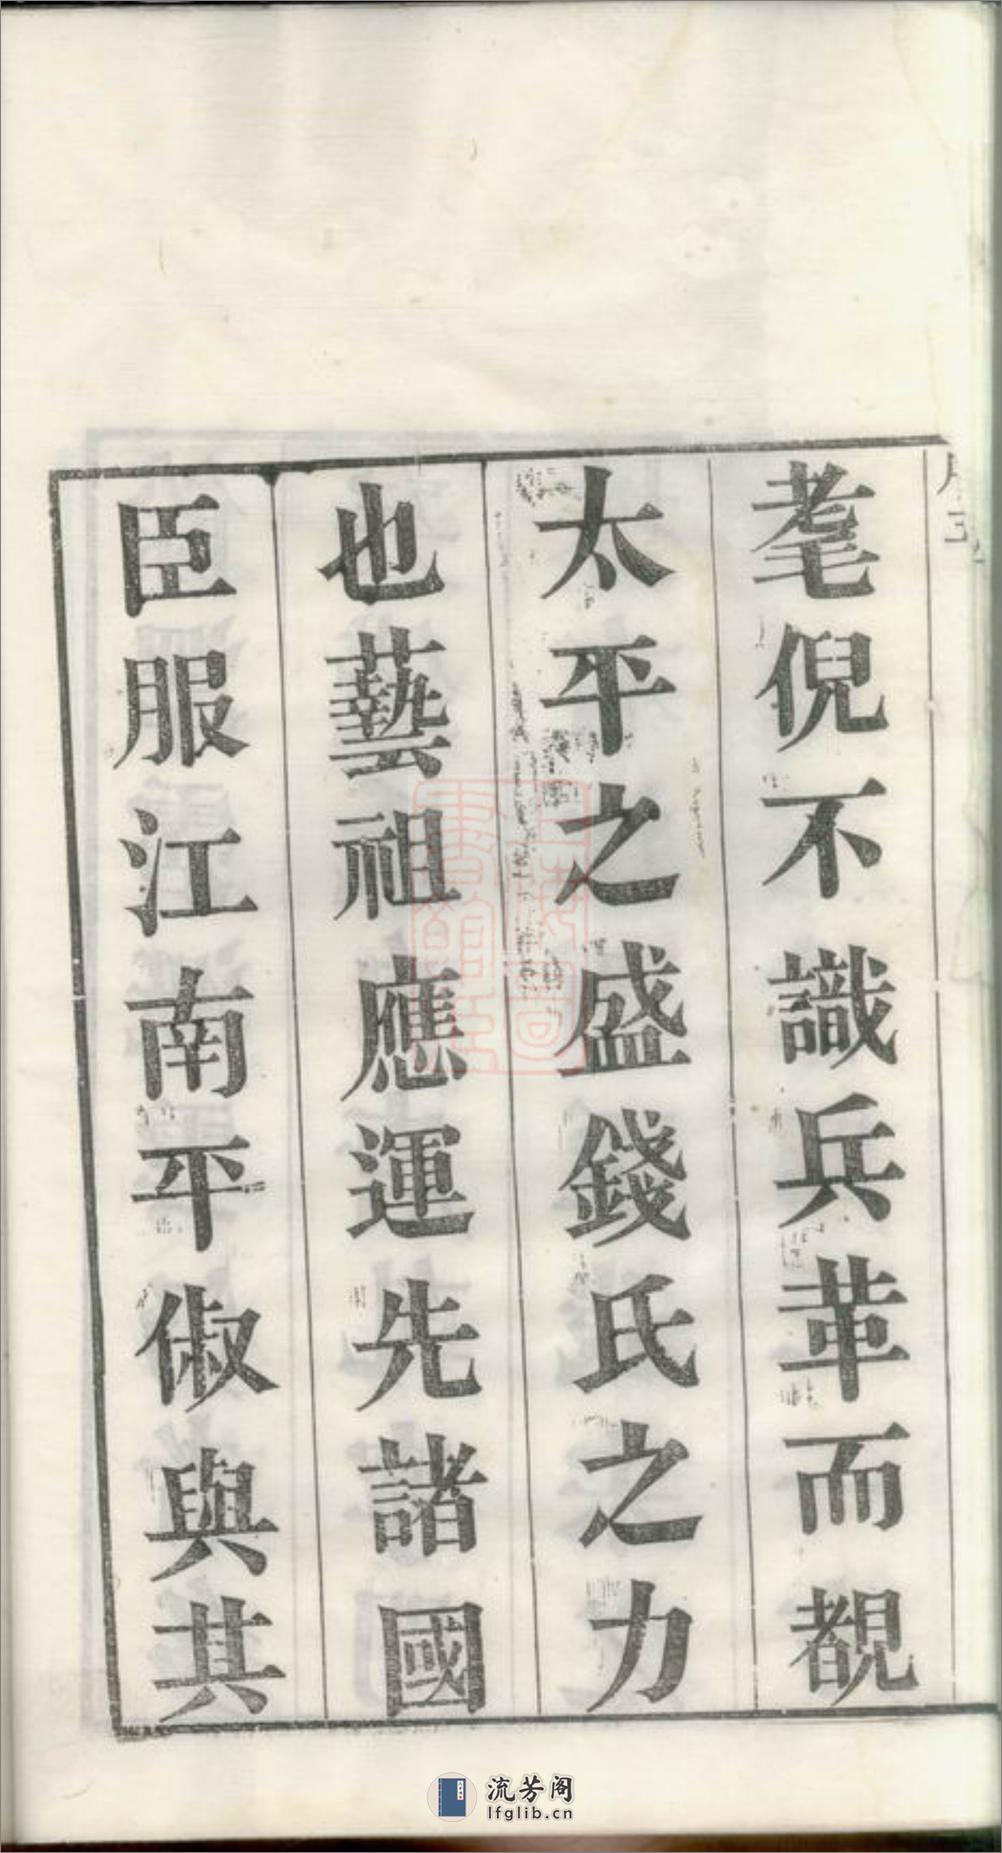 耄倪不識兵革而覩
太平之盛錢氏之力
也藝祖應運先諸國
臣服江南平俶與其
流芳阁
lfglib.cn